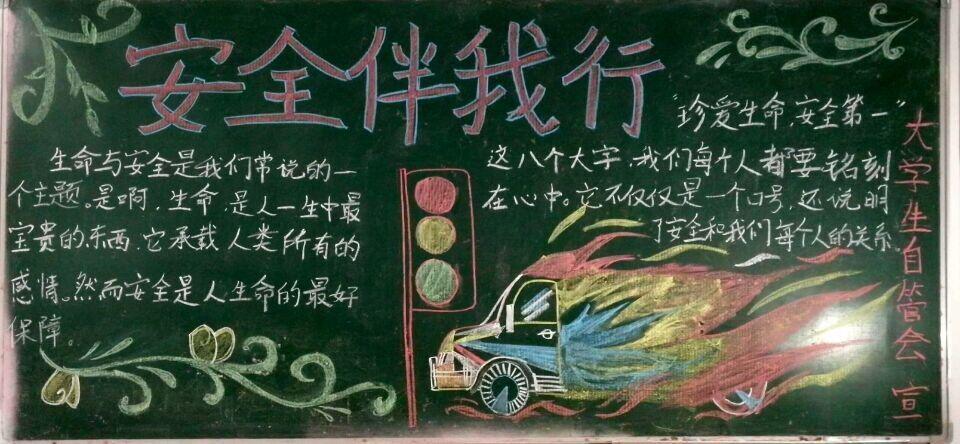 安全伴我行
生命与安全是我们常说的一
个主题。是啊，生命，是人一生中最
宝贵的东西，它承载人类所有的
感情。然而安全是人生命的最好
保障。
"珍爱生命，安全第一"
这八个大字，我们每个人都要铭刻
在心中。它不仅仅是一个口号，还说明
了安全和我们每个人的关系。
大学生自管会 宣